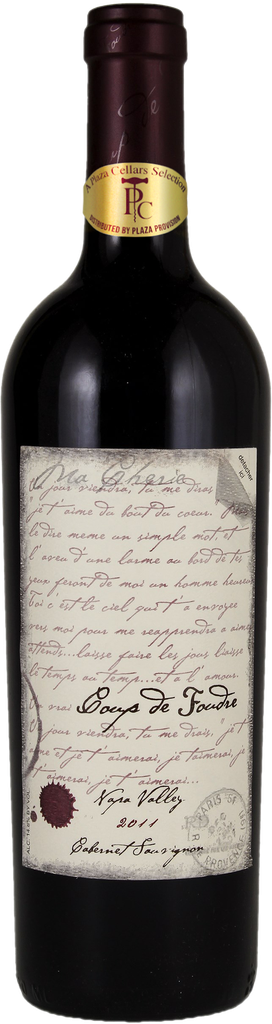 A Plaza Cellars Selection
PC
DISTRIBUTED BY PLAZA PROVISION
Ma Cherie
detacher ici
Un jour viendra, tu me diras
"je t'aime du bout du coeur.
le dire meme un simple mot, et
l'aveu d'une larme au bord de tes
yeux feront de moi un homme heureux
Toi c'est le ciel qui t'a envoyee
vers moi pour me reapprendre a aimer
attends...laisse faire les jours laisse
le temps au temps...et a l'amour.
Un vrai Coup de Foudre
Un jour viendra, tu me dirais, "je t'
aime et je t'aimerai, je t'aimerai, je
t'aimerai, je t'aimerai...
Napa Valley
2011
Cabernet Sauvignon
PARIS
PROVENCE